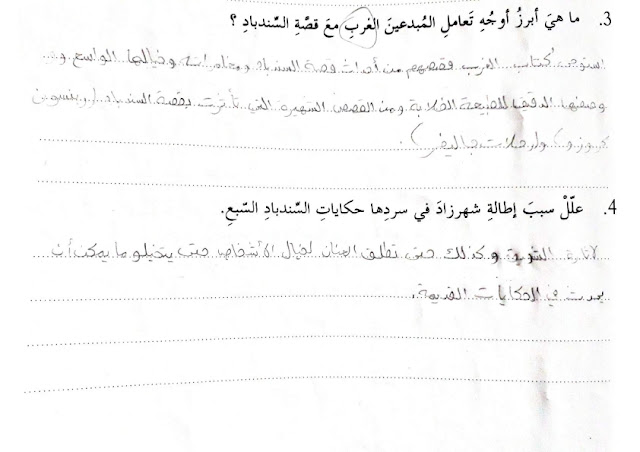 3. ما هيَ أبرزُ أوجُهِ تَعاملِ المُبدعينَ الغربِ معَ قصَّةِ السِّندبادِ ؟
استوحى كتاب الغرب قصصهم من أحداث قصة السندباد ومغامراته وخيالها الواسع
وصفها الدقيق للطبيعة الخلابة ومن القصص الشهيرة التي تأثرت بقصة السندباد (روبنسون
كروزو) و(رحلات جاليفر).
4. علّلْ سببَ إطالةِ شهرزادَ في سردِها حكاياتِ السِّندبادِ السّبعِ.
لاثارة التشويق وكذلك حتى تطلق العنان لخيال الأشخاص حتى يتخيلو ما يمكن أن
يحدث في الحكايات القديمة.